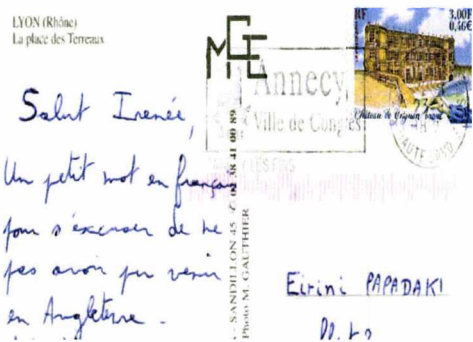 LYON (Rhône)
La place des Terreaux
MGE
RF
3.00F
0,46€
Château de Grignan
Annecy,
Ville de Congrès
Salut Irenée,
Un petit mot en français
pour s'excuser de ne
pas avoir pu venir
en Angleterre.
SANDILLON 45 ✆ 02 38 41 00 89
Photo M. GAUTHIER
Eirini PAPADAKI